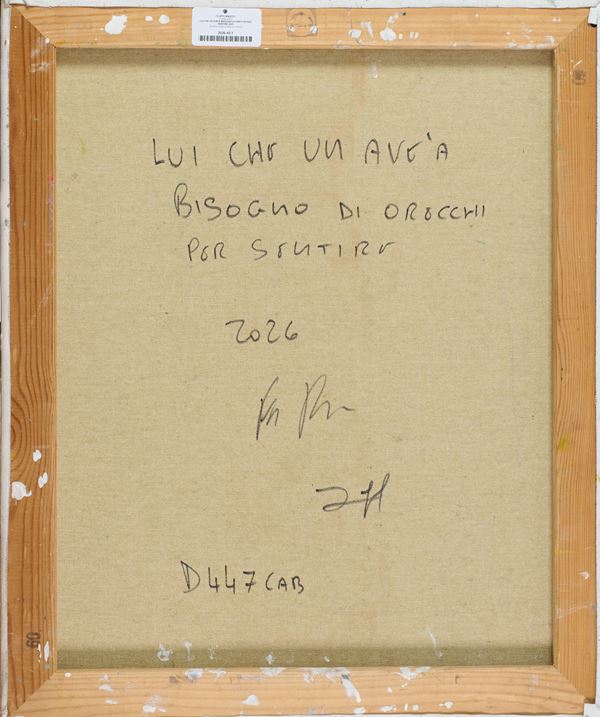 LUI CHE UN AVE'A
BISOGNO DI ORECCHI
PER SENTIRE
2026
D447CAB
60